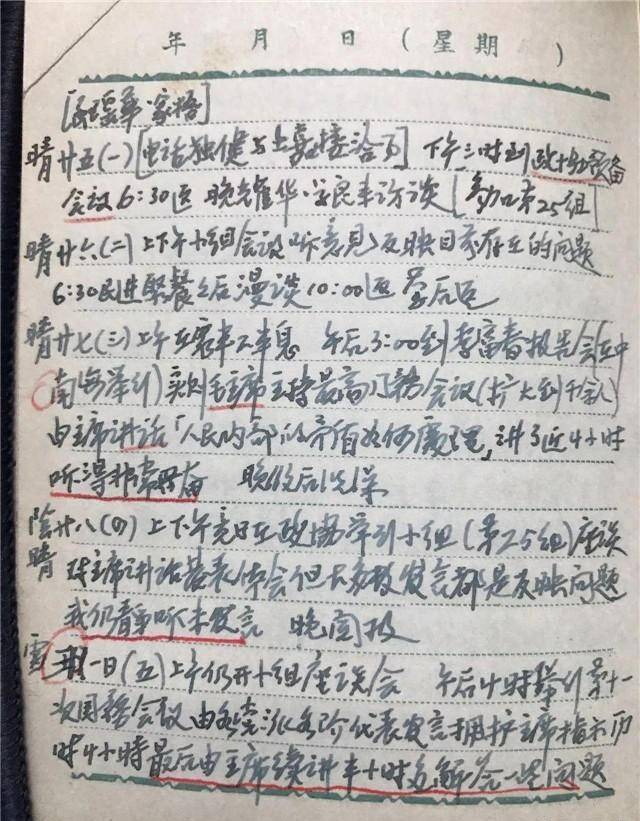 年 月 日 (星期 )
晴廿五(一)[电话独健与上 接洽 ] 下午三时到政协预备
会议6:30返 晚 华、 民来访谈 [参加第25组]
晴廿六(二)上下午小组会议听意见反映目前存在的问题
6:30民进聚餐之后漫谈10:00返
晴廿七(三)上午在寰半工半息 午后3:00到李富春报告会(在中
南海举行)实则毛主席主持最高国务会议(扩大到千余人)
由主席讲话「人民内部的矛盾如何处理」讲了近4小时
听得非常兴奋 晚 后洗澡
阴晴廿八(四)上下午竟日在政协举行小组(第25组)座谈
对主席讲话发表体会但大多数发言都是反映问题
我仍静听未发言 晚阅报
雪 一日(五)上午仍开小组座谈会 午后4时举行第十一
次国务会议由各党派各阶代表发言拥护主席指示历
时4小时最后由主席续讲半小时多解答一些问题